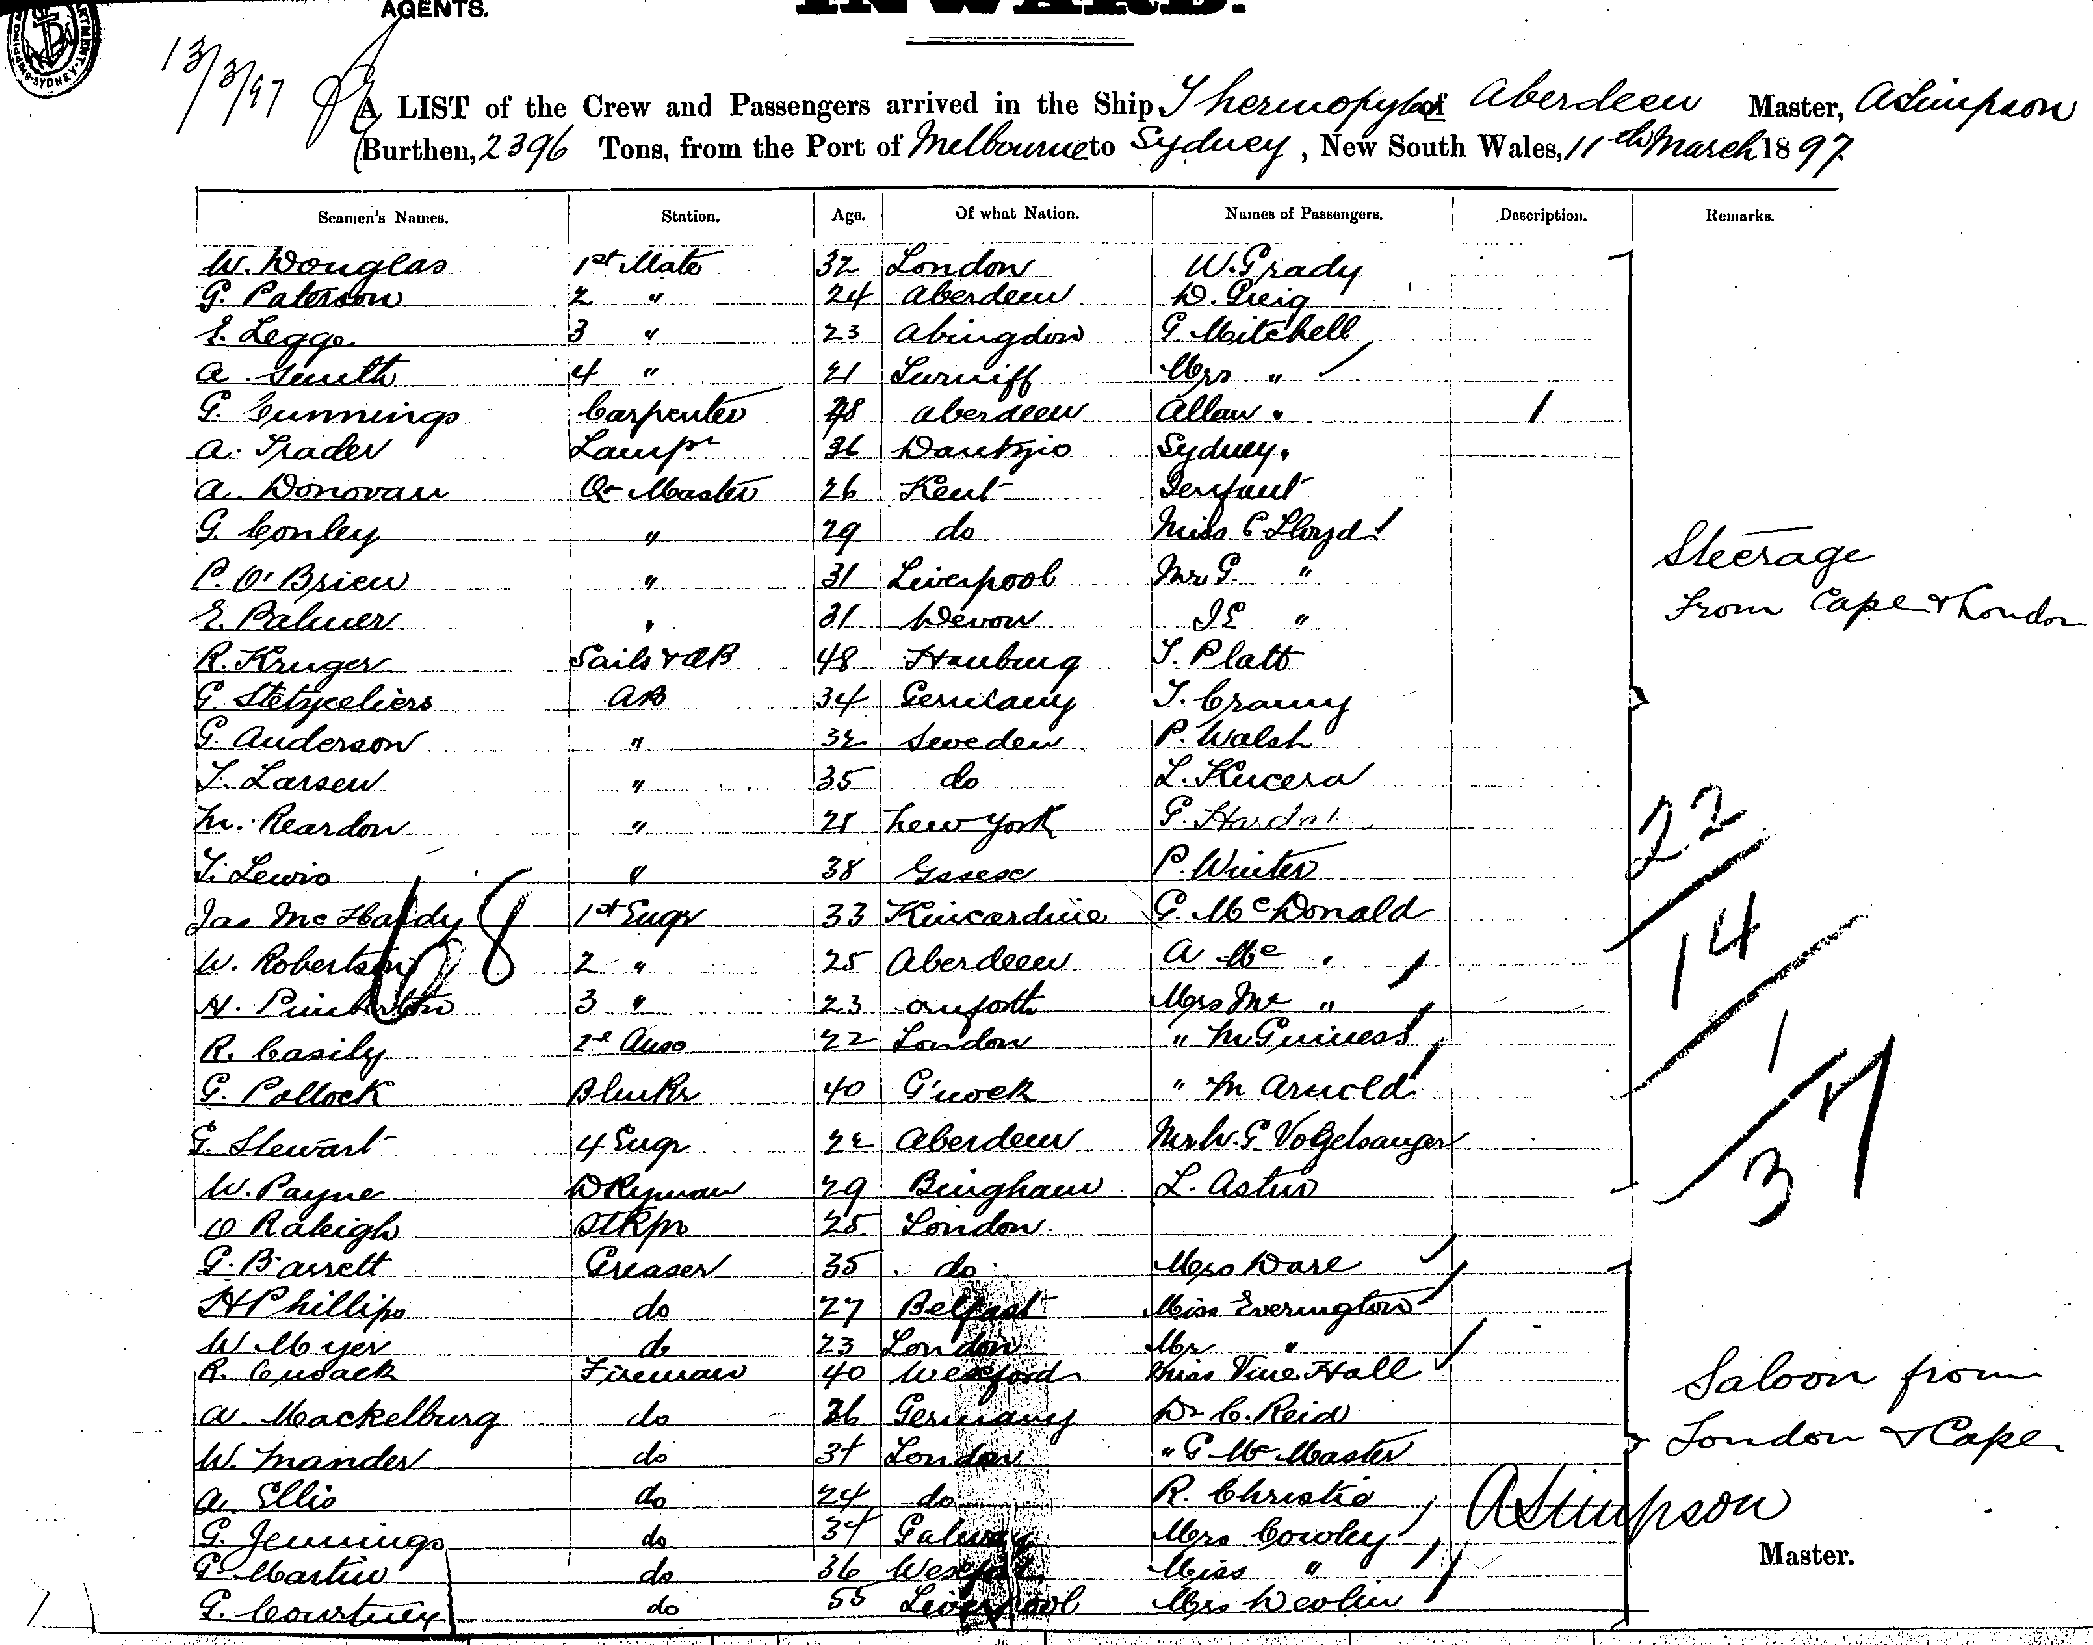 AGENTS.
INWARD.
13/3/97
A LIST of the Crew and Passengers arrived in the Ship Thermopylae of Aberdeen Master, A Simpson
Burthen, 2396 Tons, from the Port of Melbourne to Sydney, New South Wales, 11th March 1897
Seamen's Names. Station. Age. Of what Nation. Names of Passengers. Description. Remarks.
W. Douglas 1st Mate 32 London W. Grady
G. Paterson 2 " 24 Aberdeen D. Greig
E. Legge 3 " 23 Abingdon G. Mitchell
A. Smith 4 " 21 Turriff Mrs "
G. Cunnings Carpenter 28 Aberdeen Allan " 1
A. Trader Lampr 36 Dantzic Sydney "
A. Donovan Qr Master 26 Kent Infant
G. Conley " 29 do Miss C Lloyd
P. O'Brien " 31 Liverpool Mr G. "
Steerage
E. Palmer " 31 Devon I E "
from Cape & London
R. Kruger Sails & AB 48 Hamburg T. Platt
G. AB 34 Germany T. Cranny
G. Anderson " 32 Sweden P. Walsh
T. Larsen " 35 do L. Kucera
M. Reardon " 21 New York G.
22
T. Lewis " 38 Essex P. Winter
Jas McHardy 1st Engr 33 Kincardine G. McDonald
14
68
W. Robertson 2 " 25 Aberdeen A Mc "
H. Pinkerton 3 " 23 Mrs Mc "
R. Casily 2nd 22 London " McGuiness
1
G. Pollock 40 G'nock " M Arnold
37
G. Stewart 4 Engr 22 Aberdeen Mr W. G. Vogelsanger
W. Payne Dkyman 29 Bingham L. Astur
O Raleigh Stkpr 25 London
G. Barrett Greaser 35 do Mrs Dare
H Phillips do 27 Belfast Miss Everington
W Meyer do 23 London Mr "
R. Cusack Fireman 40 Wexford Miss Vine Hall
Saloon from
A. Mackelburg do 36 Germany Dr C. Reid
London & Cape
W. Mander do 31 London " G McMaster
A. Ellis do 24 do R. Christie
A Simpson
G. Jennings do 31 Galway Mrs Cowley
Master.
P. Martin do 36 Wexford Miss "
G. Courtney do 55 Liverpool Mrs Devlin